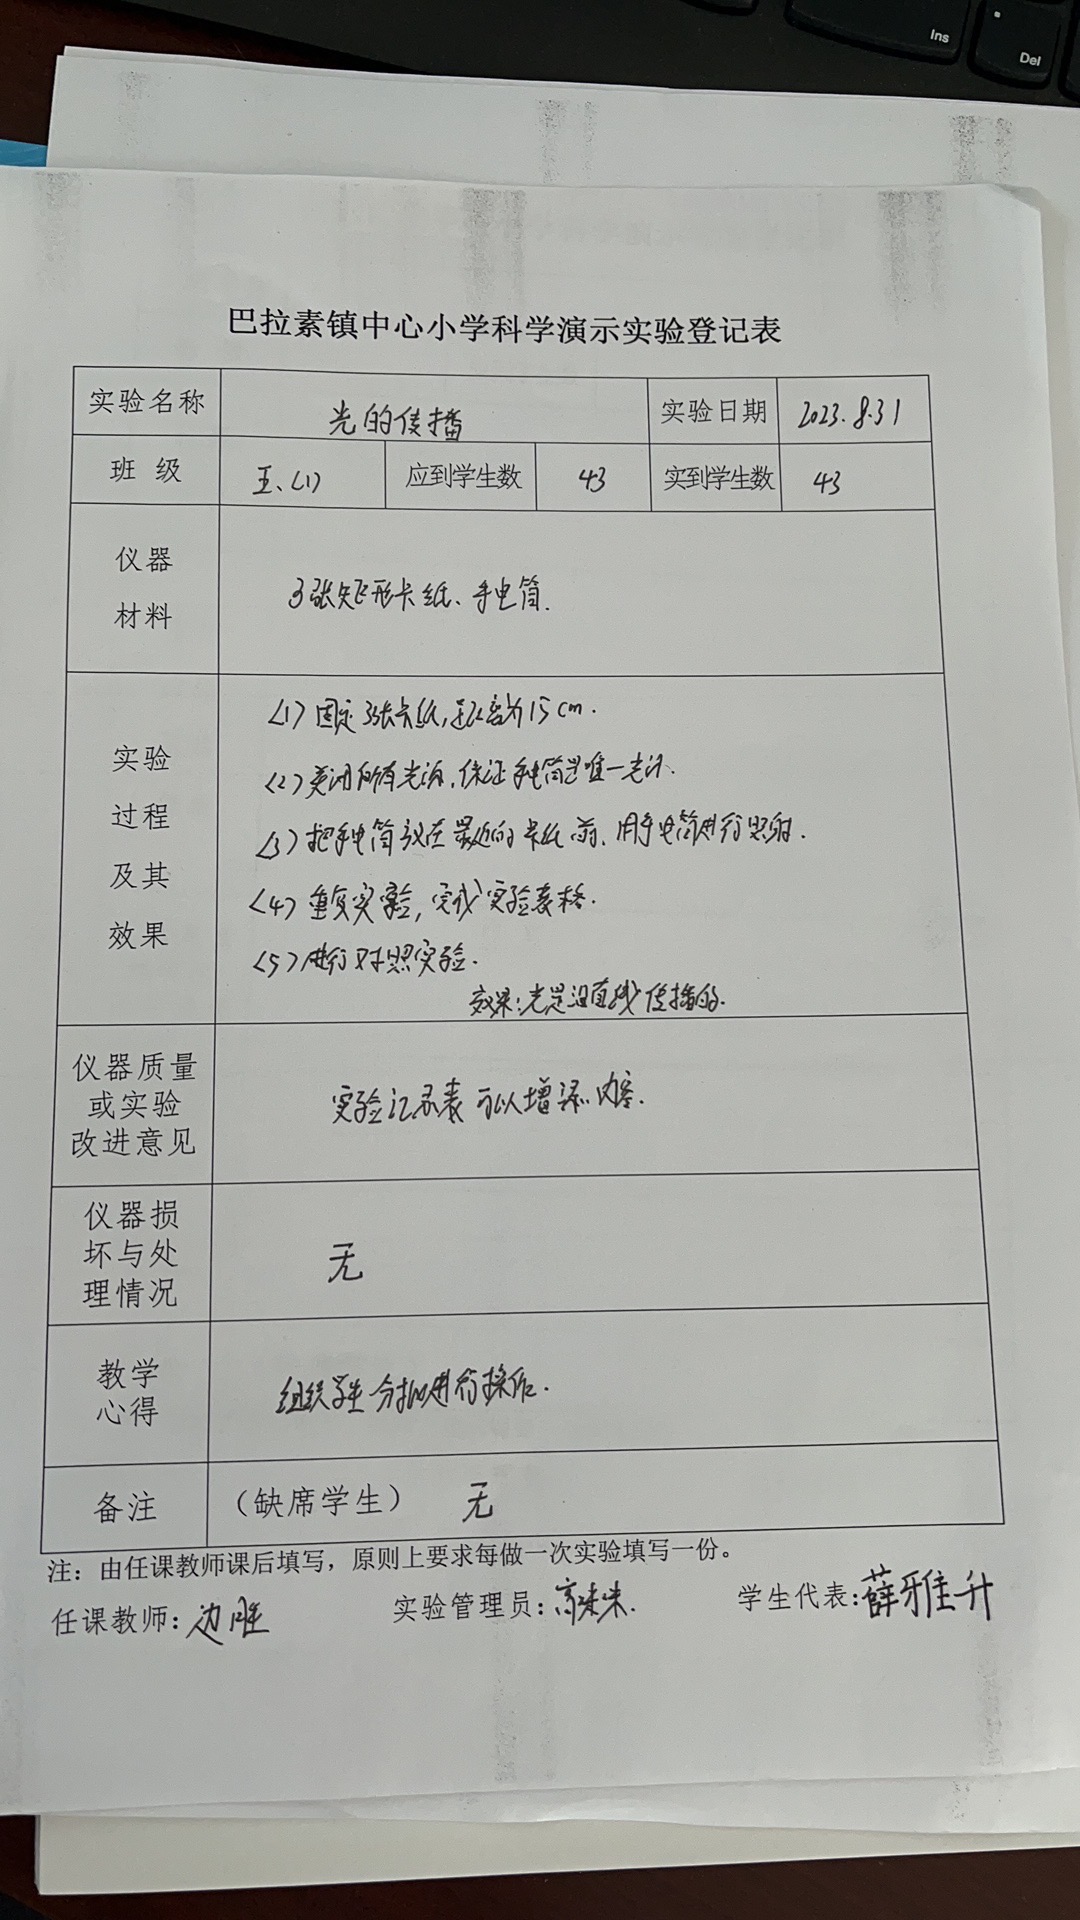 Ins
Del
巴拉素镇中心小学科学演示实验登记表
实验名称 光的传播 实验日期 2023.8.31
班 级 五、(1) 应到学生数 43 实到学生数 43
仪器
材料
3张矩形卡纸、手电筒.
实验
过程
及其
效果
(1) 固定3张卡纸,距离为15cm.
(2) 关闭所有光源,保证手电筒是唯一光源.
(3) 把手电筒放在最近的卡纸前、用手电筒进行照射.
(4) 重复实验,完成实验表格.
(5) 进行对照实验.
效果:光是沿直线传播的.
仪器质量
或实验
改进意见
实验记录表可以增添内容.
仪器损
坏与处
理情况
无
教学
心得
组织学生分批进行操作.
备注 (缺席学生) 无
注:由任课教师课后填写,原则上要求每做一次实验填写一份。
任课教师:边胜 实验管理员: 学生代表:薛雅升